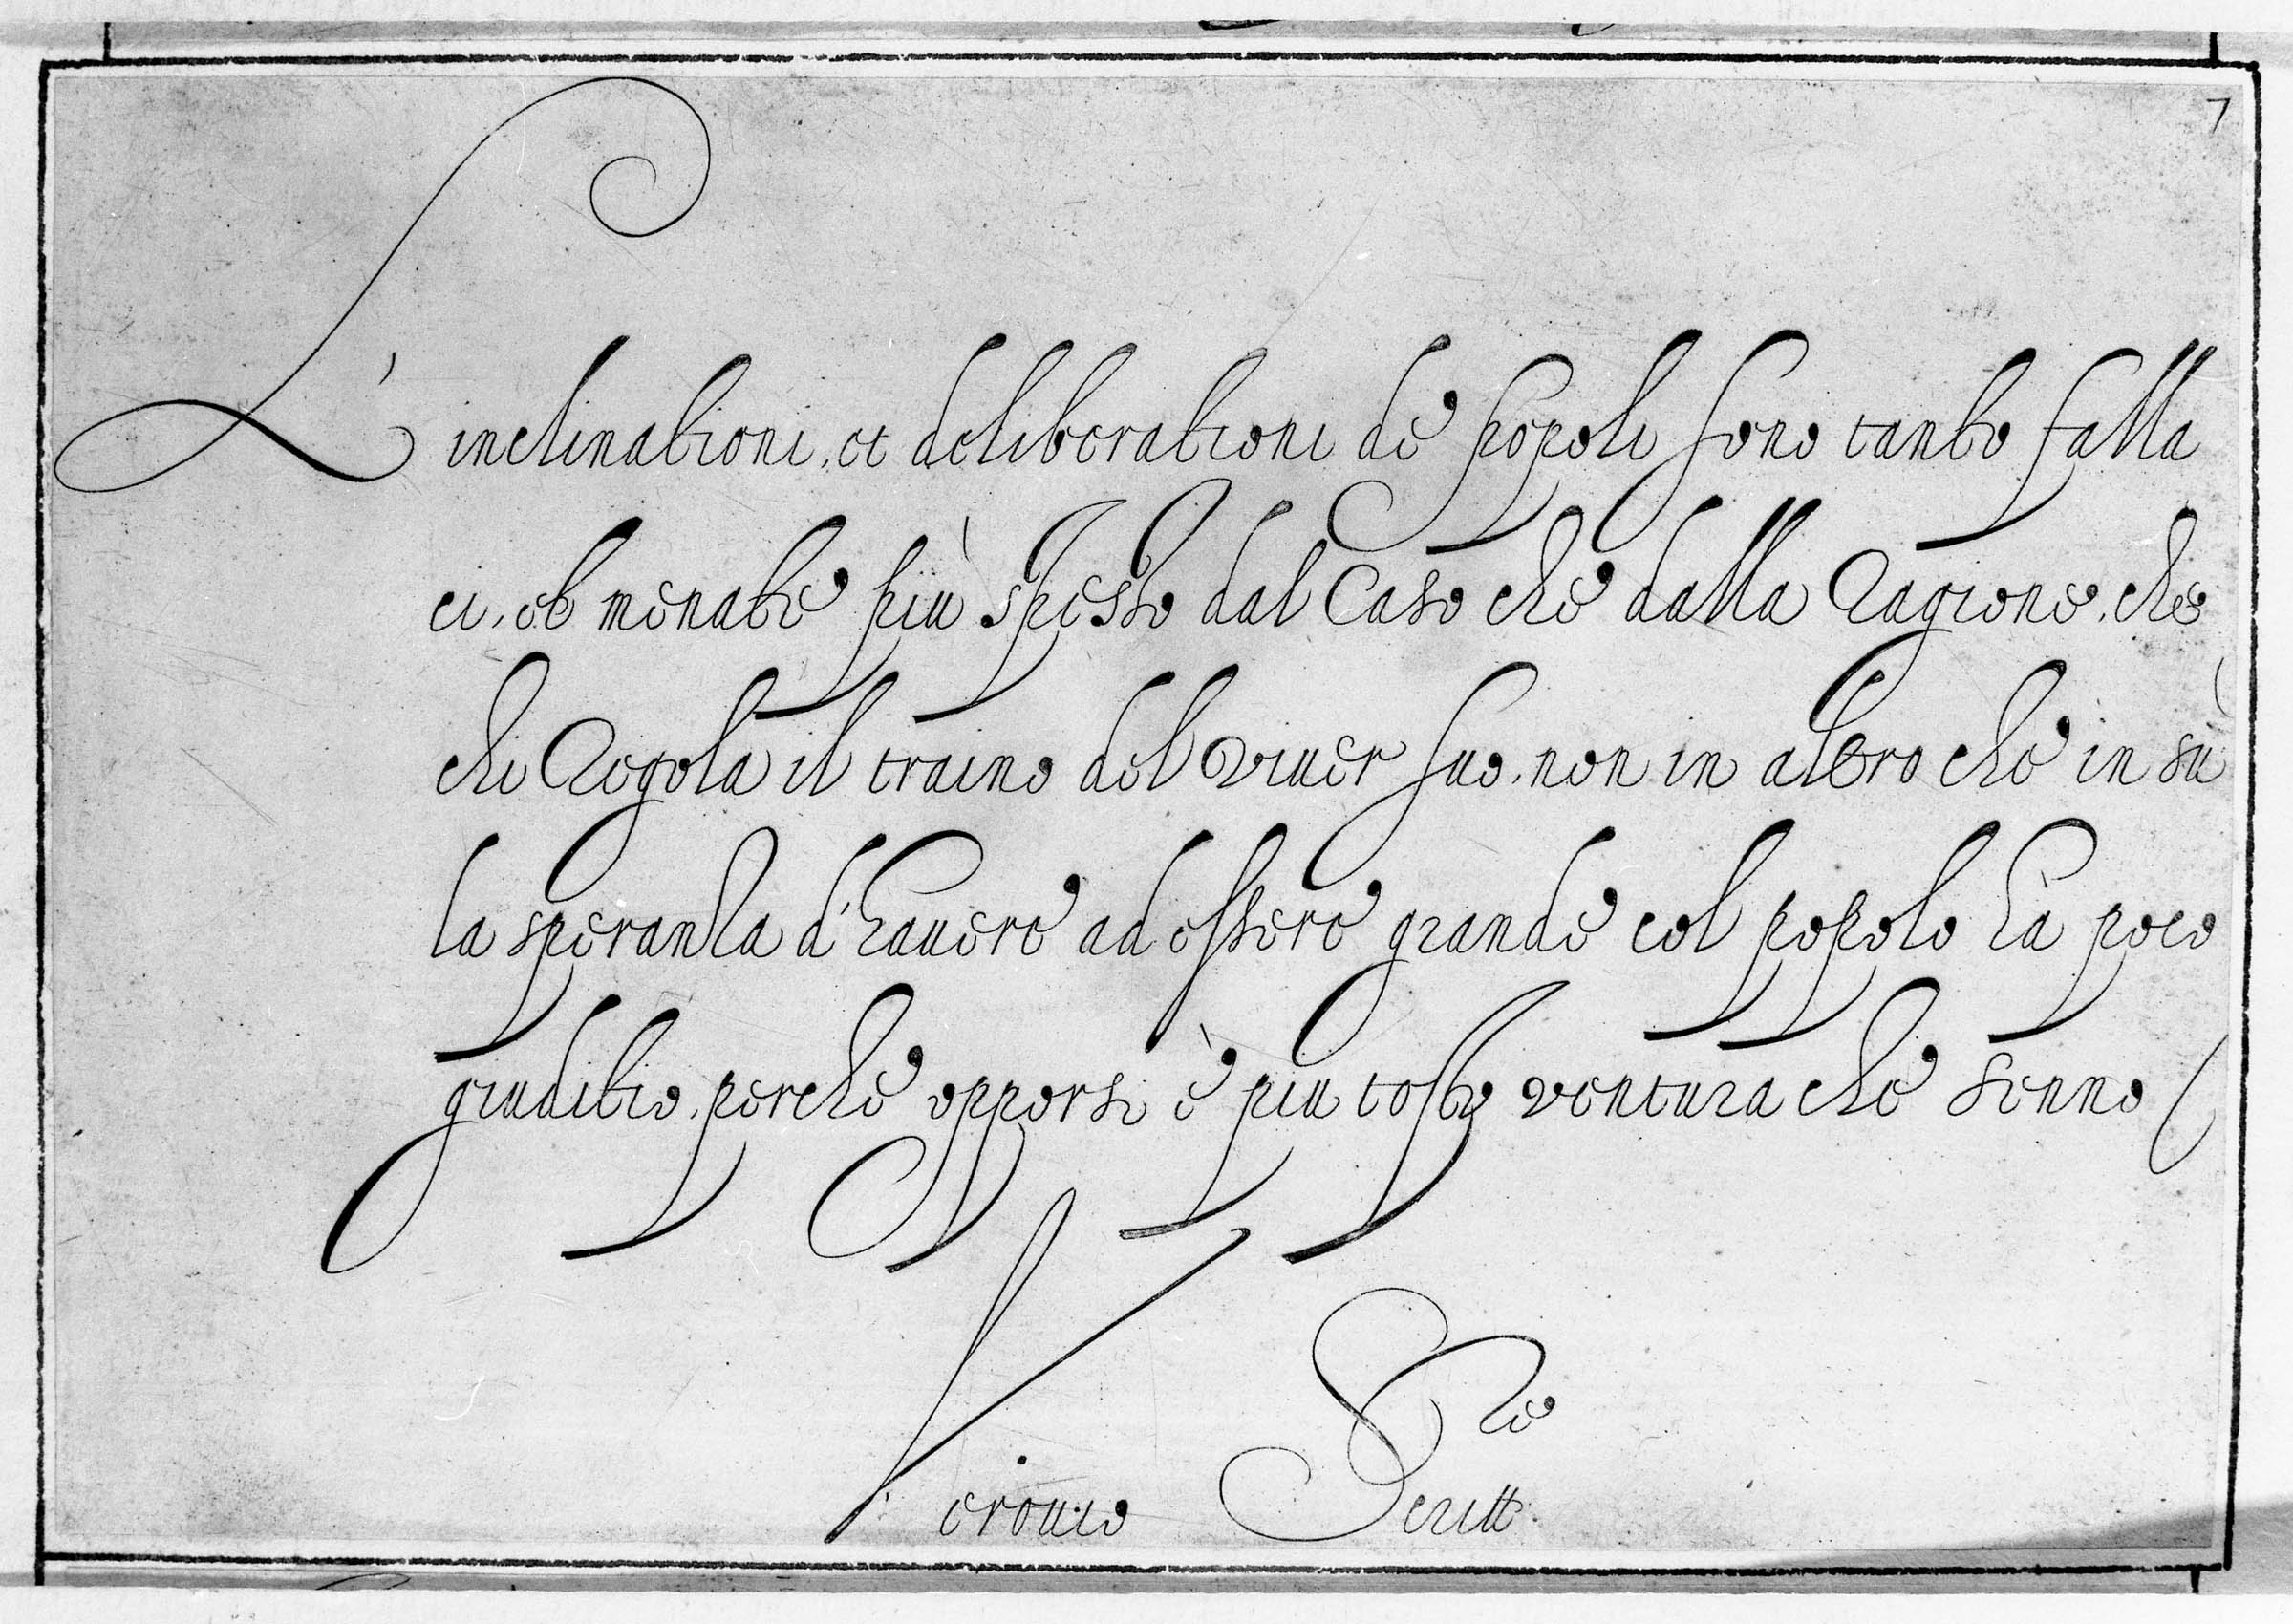 7
L'inclinationi, et deliberationi de popoli sono tanto falla
ci, et menate più spesso dal Caso che dalla Ragione, che
chi Regola il traino del viuer suo, non in altro che in sù
la speranza d'hauere ad essere grande col popolo hà poco
giuditio, perche apporsi è piu tosto ventura che senno
Scritt.re